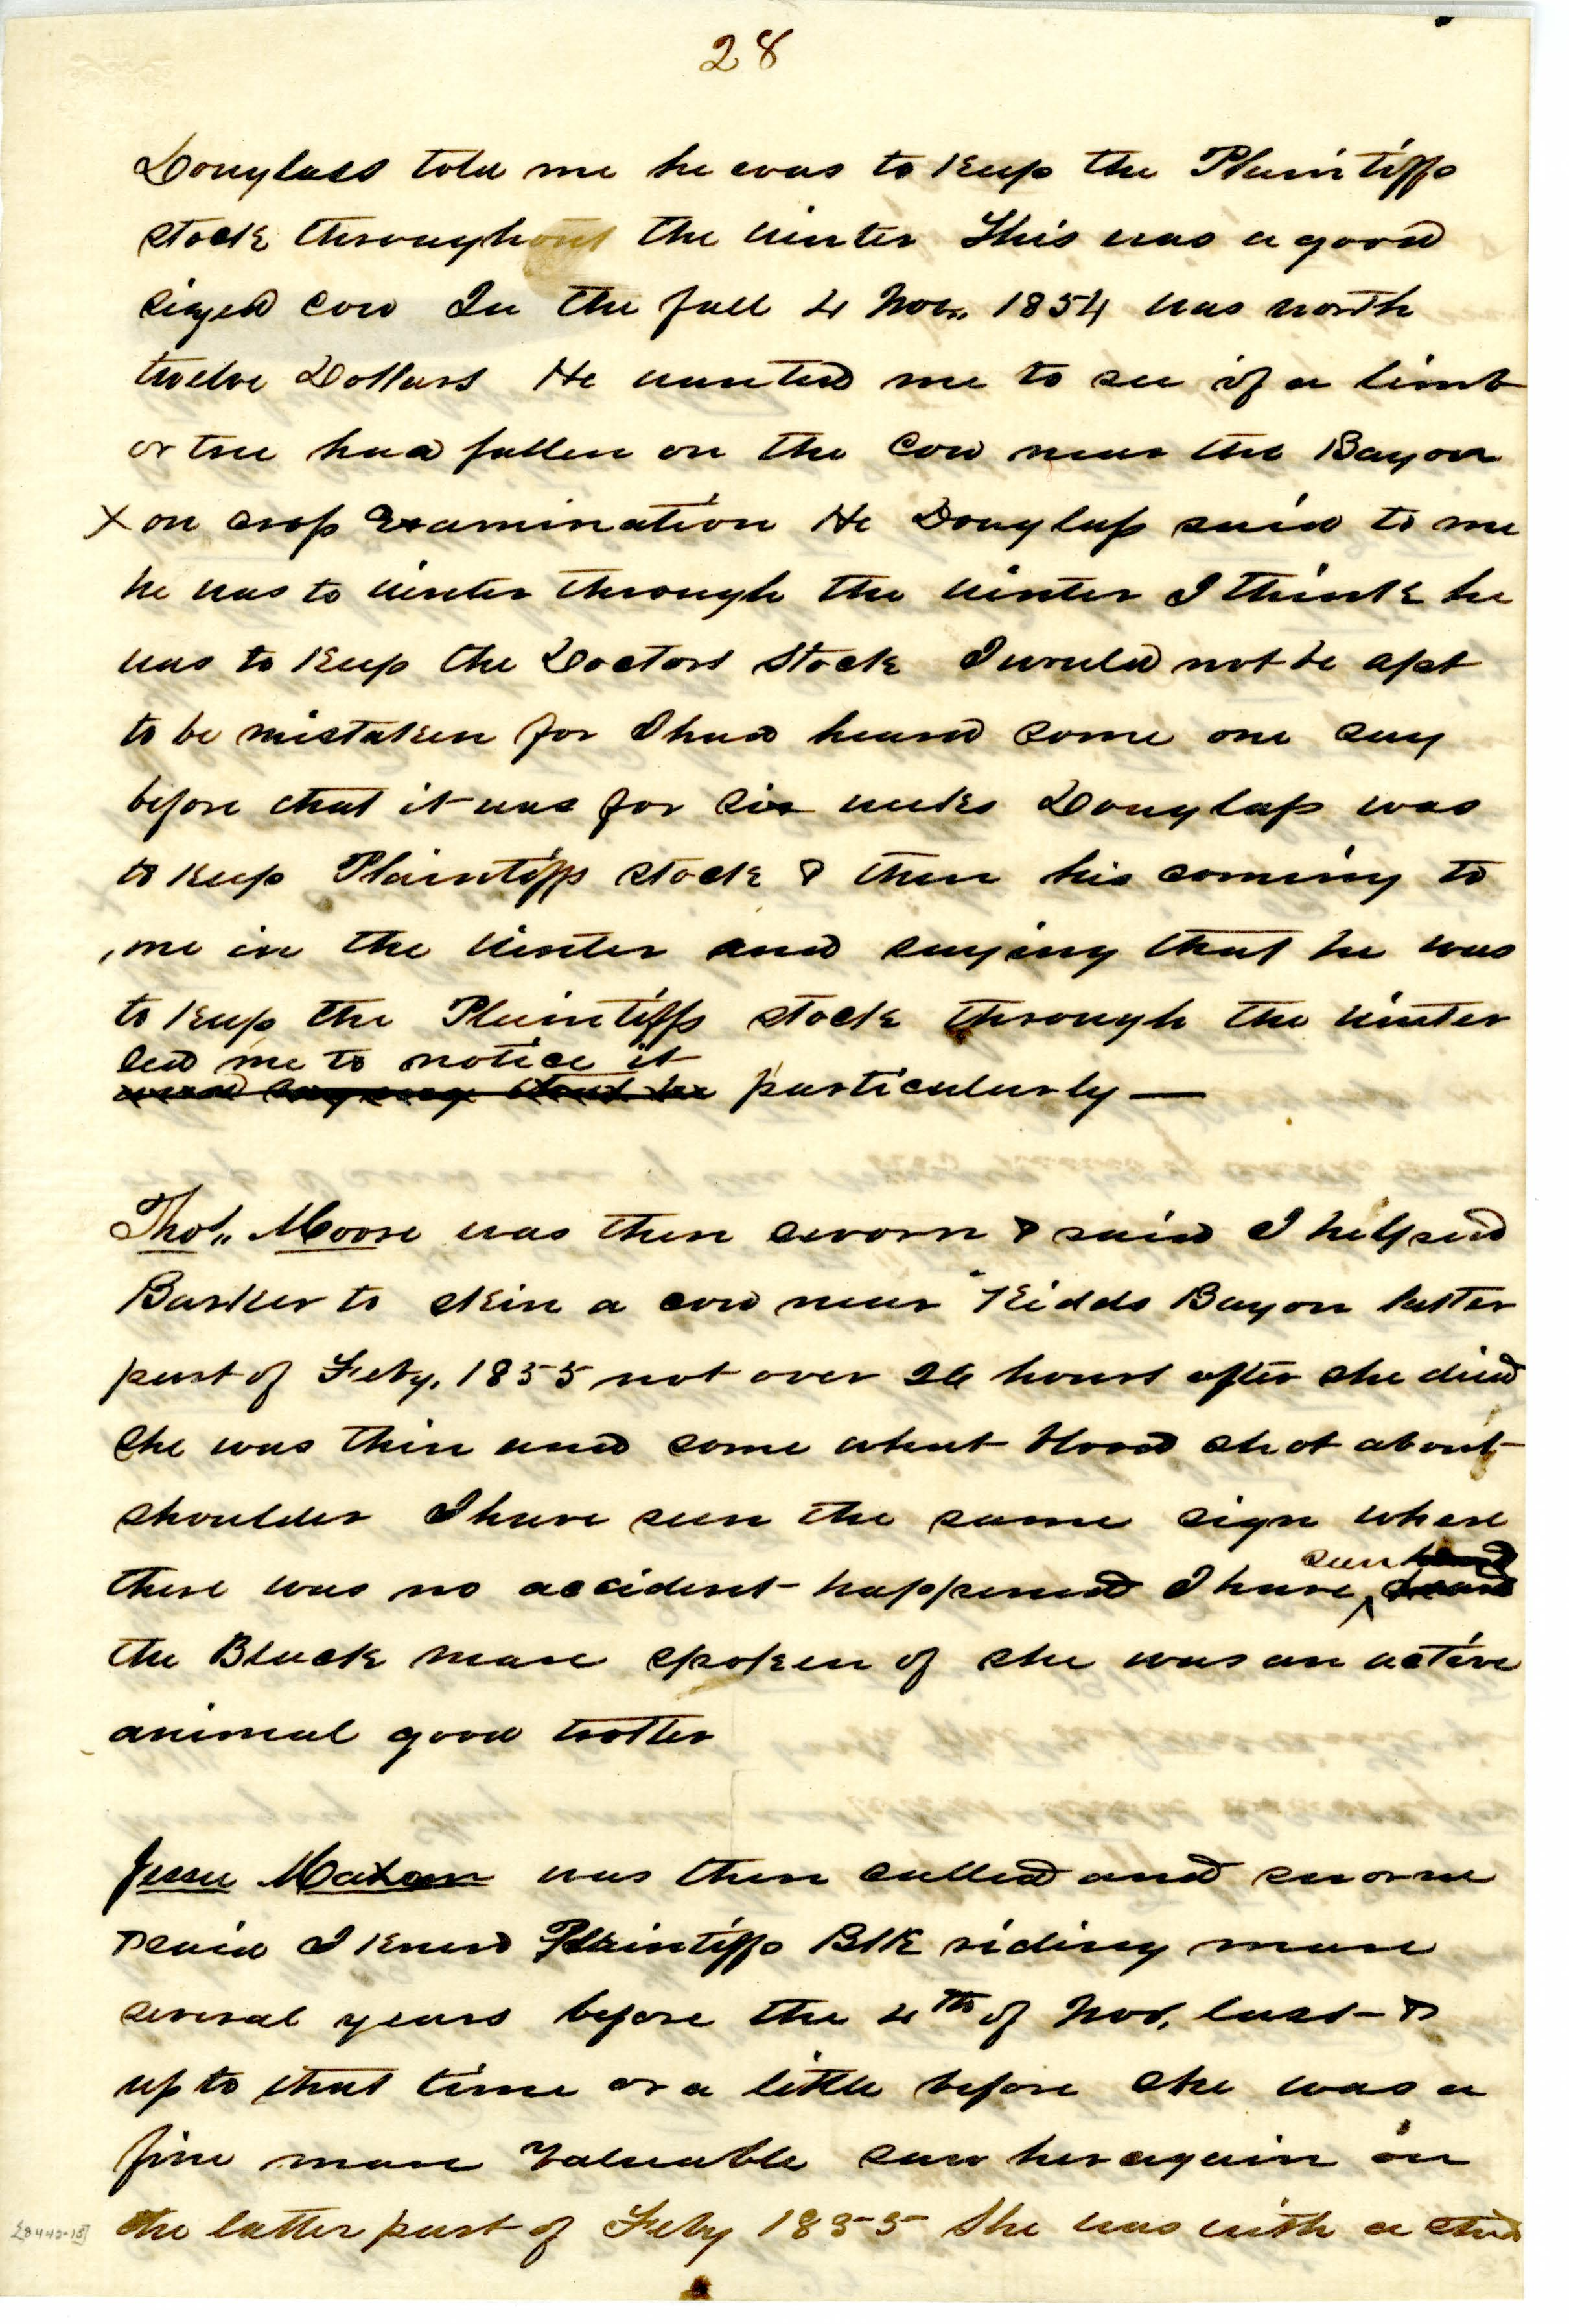 28
Douglass told me he was to keep the Plaintiffs
stock throughout the winter This was a good
sized cow In the fall 4 Nov. 1854 was worth
twelve Dollars He wanted me to see if a limb
or tree had fallen on the Cow near the Bayou
X on cross Examination He Douglass said to me
he was to winter through the winter I think he
was to keep the Doctors Stock I would not be apt
to be mistaken for I had heard some one say
before that it was for six weeks Douglass was
to keep Plaintiffs stock & then his coming to
me in the winter and saying that he was
to keep the Plaintiffs stock through the winter
led me to notice it
particularly —
Thos. Moore was then sworn & said I helped
Barker to skin a cow near Kidds Bayou latter
part of Feby. 1855 not over 26 hours after she died
She was thin and some what blood shot about
shoulder I have seen the same sign where
there was no accident happened I have seen
the Black mare spoken of she was an active
animal good trotter
Jesse was then called and sworn
& said I knew Plaintiffs Blk riding mare
several years before the 4th of Nov. last &
up to that time or a little before she was a
fine mare valuable saw her again in
the latter part of Feby 1855 She was with a